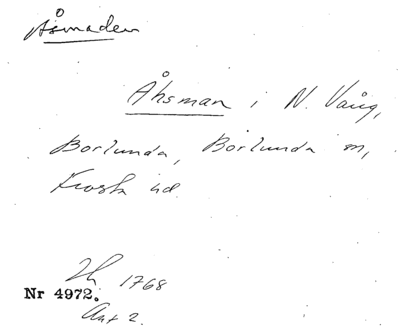 Åsmaden
Åhsman i N. Vång,
Borlunda, Borlunda m,
Frosta hd.
Ih 1768
Nr 4972.
Akt 2.